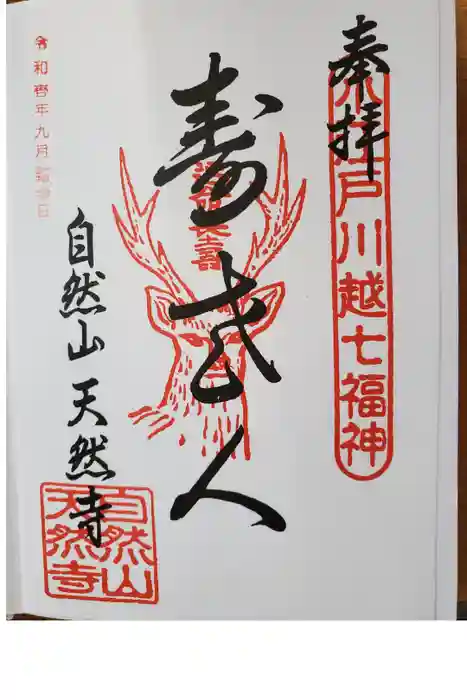 奉拝
小江戸川越七福神
長壽
寿老人
自然山 天然寺
自然山
天然寺
令和年九月日